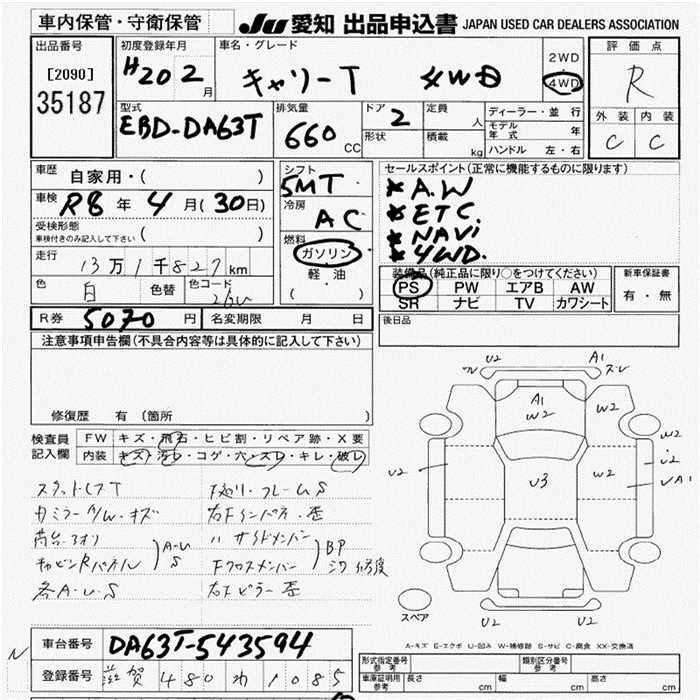 車内保管・守衛保管
JU 愛知 出品申込書 JAPAN USED CAR DEALERS ASSOCIATION
出品番号
[2090]
35187
初度登録年月
H20 2月
車名・グレード
キャリーT 4WD
2WD
4WD
評価点
R
外装 内装
C C
型式
EBD-DA63T
排気量
660 CC
ドア 2
形状
定員 人
積載 kg
ディーラー・並行
モデル年式 年
ハンドル 左・右
車歴 自家用・( )
車検 R8 年 4 月(30日)
受検形態
車検付きのみ記入して下さい ( )
走行 13万1千827km
色 白 色替 色コード 26U
シフト
5MT
冷房
AC
燃料
ガソリン
軽・油
( )
セールスポイント(正常に機能するものに限ります)
* A.W
* ETC.
* NAVi
* 4WD.
装備品(純正品に限り○をつけてください)
PS PW エアB AW
SR ナビ TV カワシート
新車保証書
有・無
R券 5070 円 名変期限 月 日
後日品
注意事項申告欄(不具合内容等は具体的に記入して下さい)
修復歴 有(箇所 )
検査員記入欄
FW キズ・飛石・ヒビ割・リペア跡・X要
内装 キズ・汚レ・コゲ・穴・スレ・キレ・破レ
スタットレスT
カミラーA/W・キズ
荷台・アオリ
キャビンRパネル
A-U
S
各A・U・S
下廻り・フレームS
右Fインパネ・歪
〃 サイドメンバー
Fクロスメンバー
BP
右Fピラー歪
U2 A1
A1
W2
W2
W2
U2
U3
W2
U2
U2
スペア
A-キズ E-エクボ U-凹み W-補修跡 S-サビ C-腐食 XX-交換済
車台番号 DA63T-543594
登録番号 滋賀 480 わ 1085
型式指定番号 参考
類別区分番号 参考
車庫証明用 参考 長さ cm 幅 cm 高さ cm